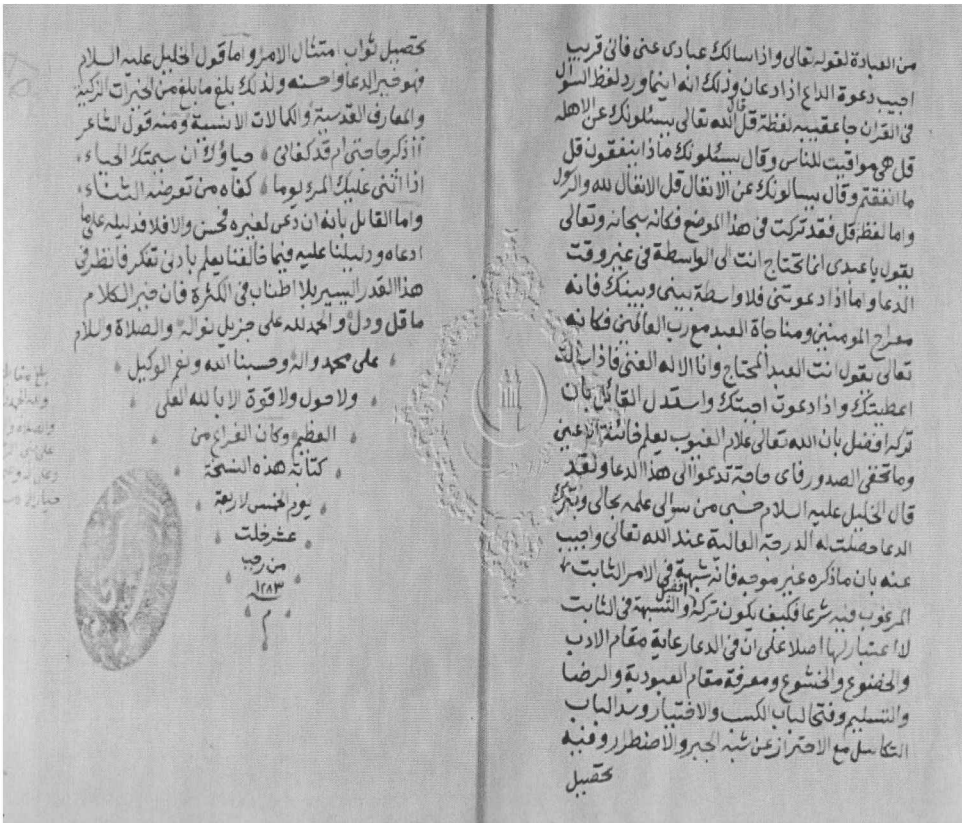 من العبادة لقوله تعالى واذا سالك عبادى عنى فانى قريب
اجيب دعوة الداع اذا دعان وذلك انه اينما ورد لفظ السؤال
فى القران جا عقيبه لفظة قل قال الله تعالى يسئلونك عن الاهلة
قل هى مواقيت للناس وقال يسئلونك ماذا ينفقون قل
ما انفقتم وقال يسالونك عن الانفال قل الانفال لله والرسول
واما لفظة قل فقد تركت فى هذا الموضع فكانه سبحانه وتعالى
يقول يا عبدى انما تحتاج انت الى الواسطة فى غير وقت
الدعا واما اذا دعوتنى فلا واسطة بينى وبينك فانه
معراج المومنين ومناجاة العبد مع رب العالمين فكانه
تعالى يقول انت العبد المحتاج وانا الاله الغنى فاذا سالت
اعطيتك واذا دعوت اجبتك واستدل القائل بان
تركه افضل بان الله تعالى علام الغيوب يعلم خائنة الاعين
وما تخفى الصدور فاى حاجة تدعوا الى هذا الدعا ولقد
قال الخليل عليه السلام حسبى من سوالى علمه بحالى وبترك
الدعا حصلت له الدرجة العالية عند الله تعالى واجيب
عنه بان ما ذكره غير موجه فانه شبهة فى الامر الثابت
المرغوب فيه شرعا فكيف يكون تركه افضل والشبهة فى الثابت
لا اعتبار لها اصلا على ان فى الدعا رعاية مقام الادب
والخضوع والخشوع ومعرفة مقام العبودية والرضا
والتسليم وفتحا لباب الكسب والاختيار وسد الباب
التكاسل مع الاحتراز عن شبه الجبر والاضطرار وفيه
تحصيل
تحصيل ثواب امتثال الامر واما قول الخليل عليه السلام
فهو خير الدعا واحسنه ولذلك بلغ ما بلغ من الخيرات الزكية
والمعارف القدسية والكمالات الانسية ومنه قول الشاعر
أاذكر حاجتى ام قد كفانى حياؤك ان شيمتك الحياء
اذا اثنى عليك المرء يوما كفاه من تعرضه الثناء
واما القائل بانه ان دعى لغيره فحسن والا فلا فدليله على ما
ادعاه ودليلنا عليه فيما خالفنا يعلم بادنى تفكر فانظر فى
هذا القدر اليسير بلا اطناب فى الكثرة فان خير الكلام
ما قل ودل والحمد لله على جزيل نواله والصلاة والسلام
على محمد واله وحسبنا الله ونعم الوكيل
ولا حول ولا قوة الا بالله العلى
العظيم وكان الفراغ من
كتابة هذه النسخة
يوم الخميس لاربعة
عشر خلت
من رجب
١٢٨٣
م